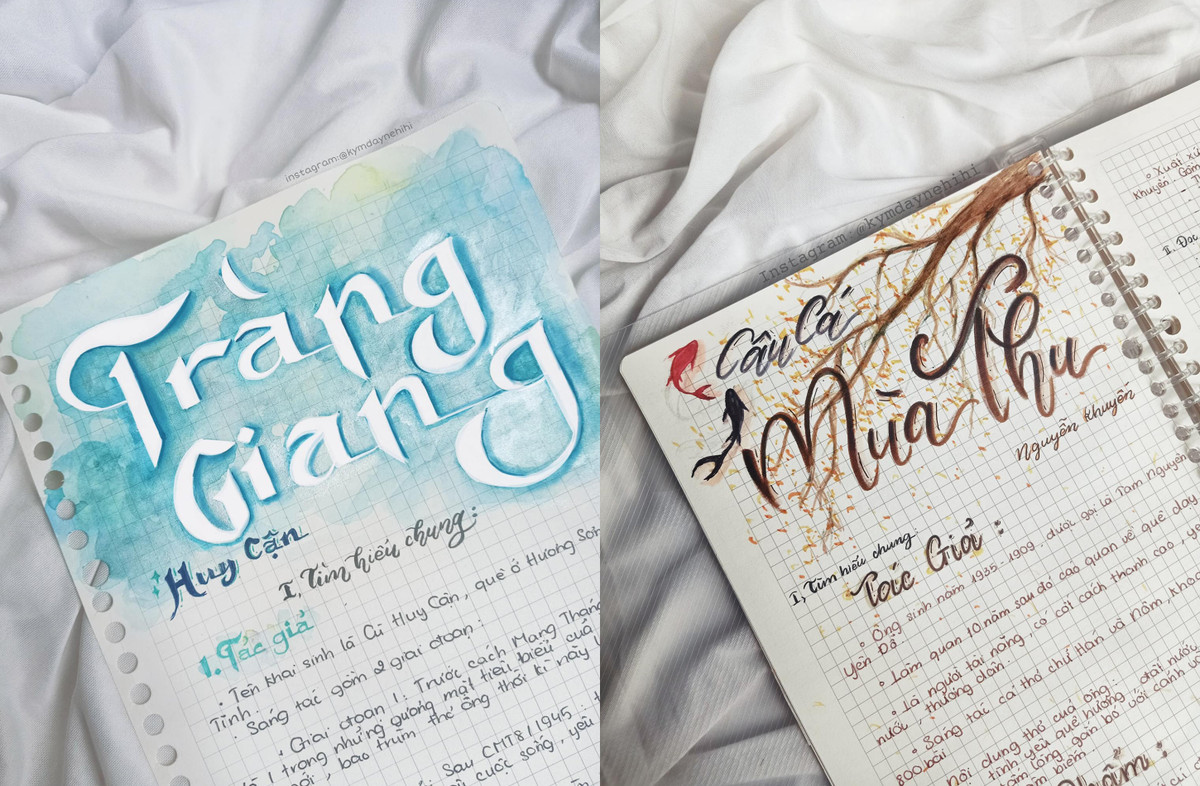 instagram:@kymdaynehihi
Tràng
Giang
Huy Cận
I, Tìm hiểu chung:
1. Tác giả
• Tên khai sinh là Cù Huy Cận, quê ở Hương Sơn
Tỉnh.
• Sáng tác gồm 2 giai đoạn:
+ Giai đoạn 1: Trước cách Mạng Tháng
1 trong những gương mặt tiêu biểu của
mới, bao trùm thơ ông thời kì này
Sau CMT8/1945:
cuộc sống, yêu
Instagram:@kymdaynehihi
Câu Cá
Mùa Thu
Nguyễn Khuyến
I, Tìm hiểu chung:
Tác Giả:
• Ông sinh năm 1935-1909, được gọi là Tam Nguyên
Yên Đổ.
• Làm quan 10 năm sau đó cáo quan về quê dạy
• Là người tài năng, có cốt cách thanh cao, yêu
nước, thương dân.
• Sáng tác cả thơ chữ Hán và Nôm, khoảng
800 bài
Nội dung thơ của ông:
tình yêu quê hương, đất nước
tấm lòng gắn bó với cảnh
• Xuất xứ
Khuyến. Gồm
II. Đọc